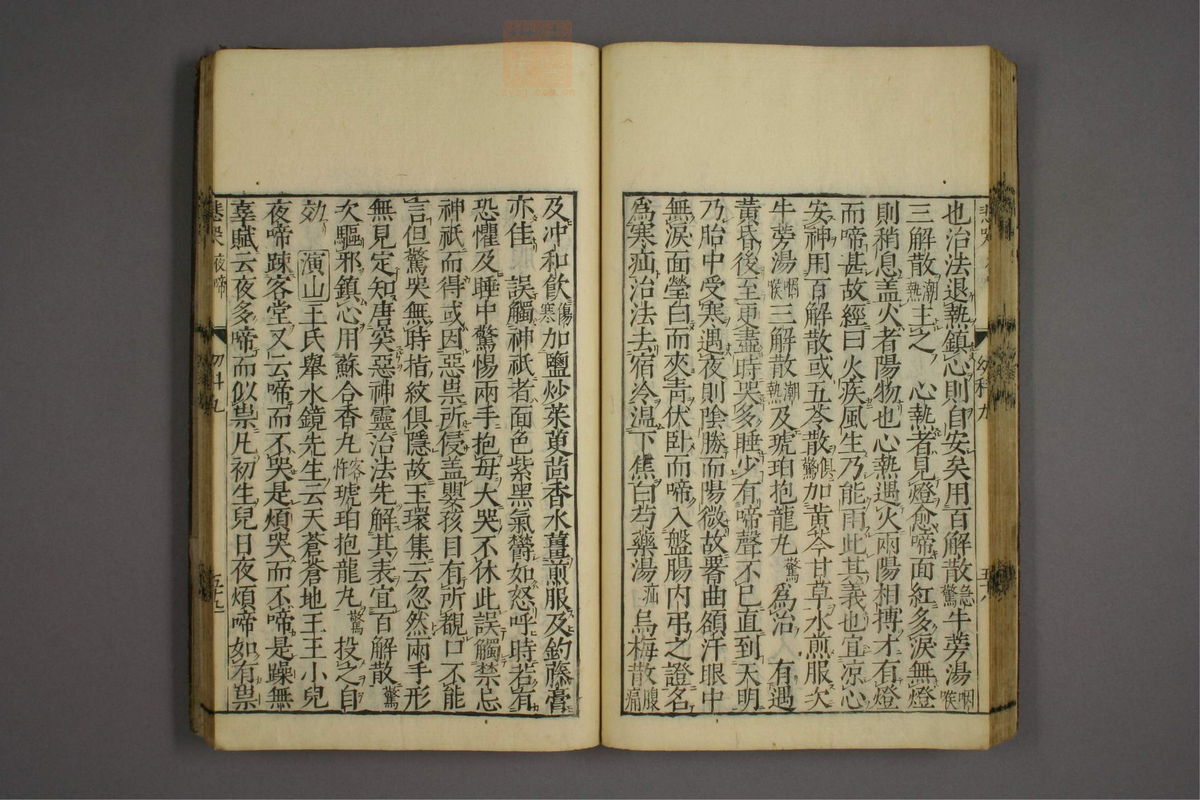 也治法退熱鎮心則自安矣用百解散急驚牛蒡湯咽喉
三解散潮熱主之 心熱者見燈愈啼面紅多淚無燈
則稍息盖火者陽物也心熱遇火兩陽相搏才有燈
而啼甚故經曰火疾風生乃能雨此其義也宜凉心
安神用百解散或五苓散俱驚加黃芩甘草水煎服次
牛蒡湯咽喉三解散潮熱及琥珀抱龍丸驚為治 有遇
黃昏後至更盡時哭多睡少有啼聲不已直到天明
乃胎中受寒遇夜則陰勝而陽微故腎曲額汗眼中
無淚面瑩白而夾青伏卧而啼入盤腸内弔之證名
為寒疝治法去宿冷溫下焦白芍藥湯疝烏梅散腹痛
幼科九
及冲和飲傷寒加鹽炒茱萸茴香水薑煎服及釣藤膏
亦佳 誤觸神祇者面色紫黑氣鬱如怒呼時若有
恐懼及睡中驚惕兩手抱母大哭不休此誤觸禁忌
神祇而得或因惡祟所侵盖嬰孩目有所覩口不能
言但驚哭無時指紋俱隱故玉環集云忽然兩手形
無見定知唐突惡神靈治法先解其表宜百解散驚
次驅邪鎮心用蘇合香丸客忤琥珀抱龍丸驚投之自
効 演山王氏舉水鏡先生云天蒼蒼地王王小兒
夜啼踈客堂又云啼而不哭是煩哭而不啼是躁無
辜賦云夜多啼而似祟凡初生兒日夜煩啼如有祟
悲哭 夜啼 幼科九 五十九